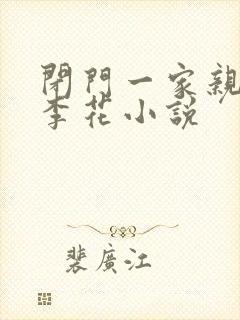 閉門一家親
李花小說
裴廣江